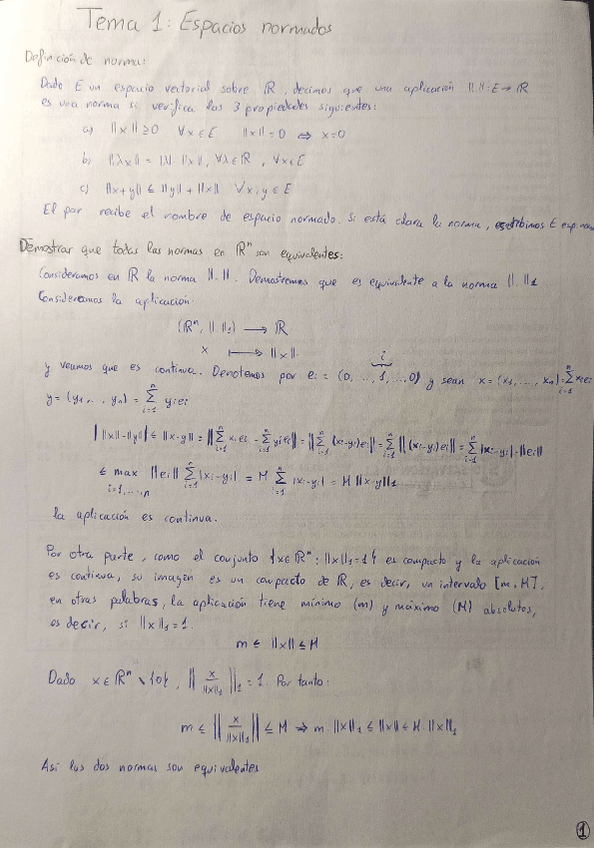 Tema 1: Espacios normados
Definición de norma:
Dado E un espacio vectorial sobre ℝ, decimos que una aplicación ||.||: E → ℝ
es una norma si verifica las 3 propiedades siguientes:
a) ||x|| ≥ 0 ∀x ∈ E ||x|| = 0 ⇔ x = 0
b) ||λx|| = |λ| ||x||, ∀λ ∈ ℝ, ∀x ∈ E
c) ||x+y|| ≤ ||y|| + ||x|| ∀x, y ∈ E
El par recibe el nombre de espacio normado. Si está clara la norma, escribimos E esp.
Demostrar que todas las normas en ℝⁿ son equivalentes:
Consideramos en ℝ la norma ||.||. Demostremos que es equivalente a la norma ||.||₁
Consideramos la aplicación:
(ℝⁿ, ||.||₁) → ℝ
x ↦ ||x||
i
y veamos que es continua. Denotemos por eᵢ = (0, ..., 1, ..., 0) y sean x = (x₁, ..., xₙ) = Σⁿᵢ₌₁ xᵢeᵢ
y = (y₁, ..., yₙ) = Σⁿᵢ₌₁ yᵢeᵢ
| ||x||-||y|| | ≤ ||x-y|| = ||Σⁿᵢ₌₁ xᵢeᵢ - Σⁿᵢ₌₁ yᵢeᵢ|| = ||Σⁿᵢ₌₁ (xᵢ-yᵢ)eᵢ|| = Σⁿᵢ₌₁ ||(xᵢ-yᵢ)eᵢ|| = Σⁿᵢ₌₁ |xᵢ-yᵢ|·||eᵢ||
≤ max ᵢ₌₁,...,ₙ ||eᵢ|| Σⁿᵢ₌₁ |xᵢ-yᵢ| = M Σⁿᵢ₌₁ |xᵢ-yᵢ| = M ||x-y||₁
la aplicación es continua.
Por otra parte, como el conjunto {x ∈ ℝⁿ: ||x||₁ = 1} es compacto y la aplicación
es continua, su imagen es un compacto de ℝ, es decir, un intervalo [m, M],
en otras palabras, la aplicación tiene mínimo (m) y máximo (M) absolutos,
es decir, si ||x||₁ = 1.
m ≤ ||x|| ≤ M
Dado x ∈ ℝⁿ \ {0}, ||x/||x||₁||₁ = 1. Por tanto:
m ≤ ||x/||x||₁|| ≤ M ⇒ m ||x||₁ ≤ ||x|| ≤ M ||x||₁
Así las dos normas son equivalentes
1